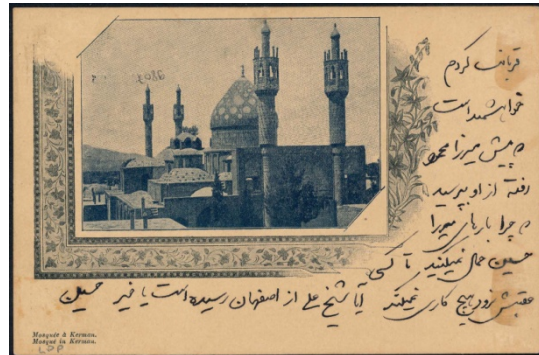 قربانت گردم
خواهشمند است
پیش میرزا محمود
رفته از او بپرسید
چرا بارهای میرزا
حسین حمل نمیکنید تا کسی
عقبش رود هیچ کاری نمیکند آیا شیخ علی از اصفهان رسیده است یا خیر حسین
Mosquée à Kerman.
Mosque in Kerman.
LDP